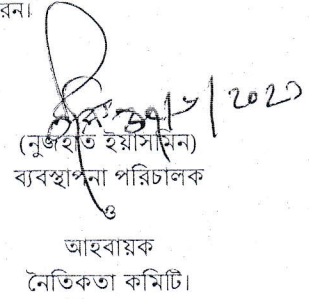 রন।
(নুজহাত ইয়াসমিন)
ব্যবস্থাপনা পরিচালক
ও
আহবায়ক
নৈতিকতা কমিটি।